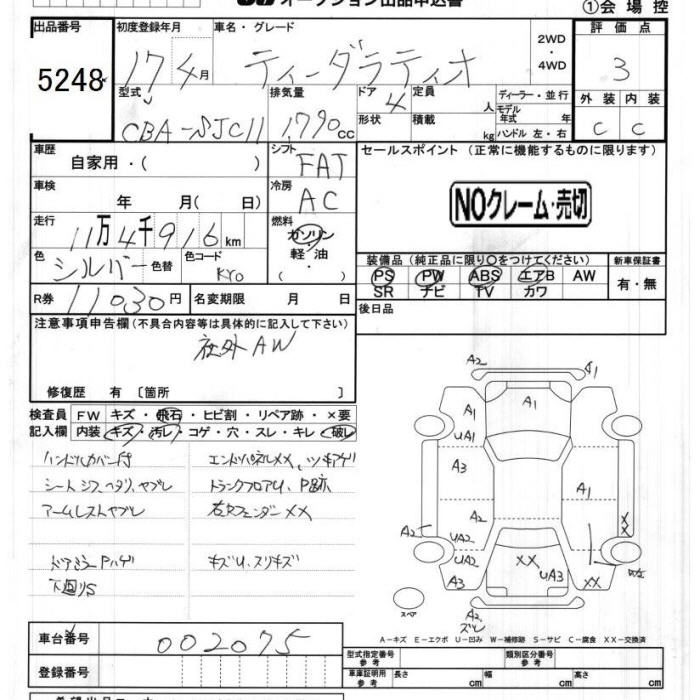 オークション出品申込書
①会場控
出品番号
5248
初度登録年月
17 4月
車名・グレード
ティーダラティオ
2WD
・
4WD
評価点
3
型式
CBA-SJC11
排気量
1,790cc
ドア
4
定員
人
ディーラー・並行
モデル
年式 年
形状
積載
kg
ハンドル 左・右
外装
内装
C
C
車歴
自家用・( )
シフト
FAT
セールスポイント (正常に機能するものに限ります)
NOクレーム・売切
車検
年 月( 日)
冷房
AC
走行
11万4千916km
燃料
ガソリン
・
軽油
( )
色
シルバー
色替
色コード
KY0
装備品 (純正品に限り○をつけてください)
新車保証書
PS PW ABS エアB AW
SR ナビ TV カワ
有・無
R券
11030円
名変期限 月 日
後日品
注意事項申告欄(不具合内容等は具体的に記入して下さい)
社外AW
修復歴 有 [箇所 ]
検査員
記入欄
FW キズ・飛石・ヒビ割・リペア跡・×要
内装 キズ・汚レ・コゲ・穴・スレ・キレ・破レ
ハンドルカバー付
エンドパネルXX、ツギアゲリ
シートシワ、ヘタリ、ヤブレ
トランクフロアU、P跡
アームレストヤブレ
右Rフェンダー XX
ドアミラーPハゲ
キズU、スリキズ
下廻りS
A2
A1
A1
A1
UA1
A3
A1
A2
A2
XX
UA2
XX
UA3
UA2
A3
XX
A2
ズレ
スペア
A-キズ E-エクボ U-凹み W-補修跡 S-サビ C-腐食 XX-交換済
車台番号
002075
型式指定番号
参考
類別区分番号
参考
登録番号
車庫証明用
参考
長さ cm
幅 cm
高さ cm